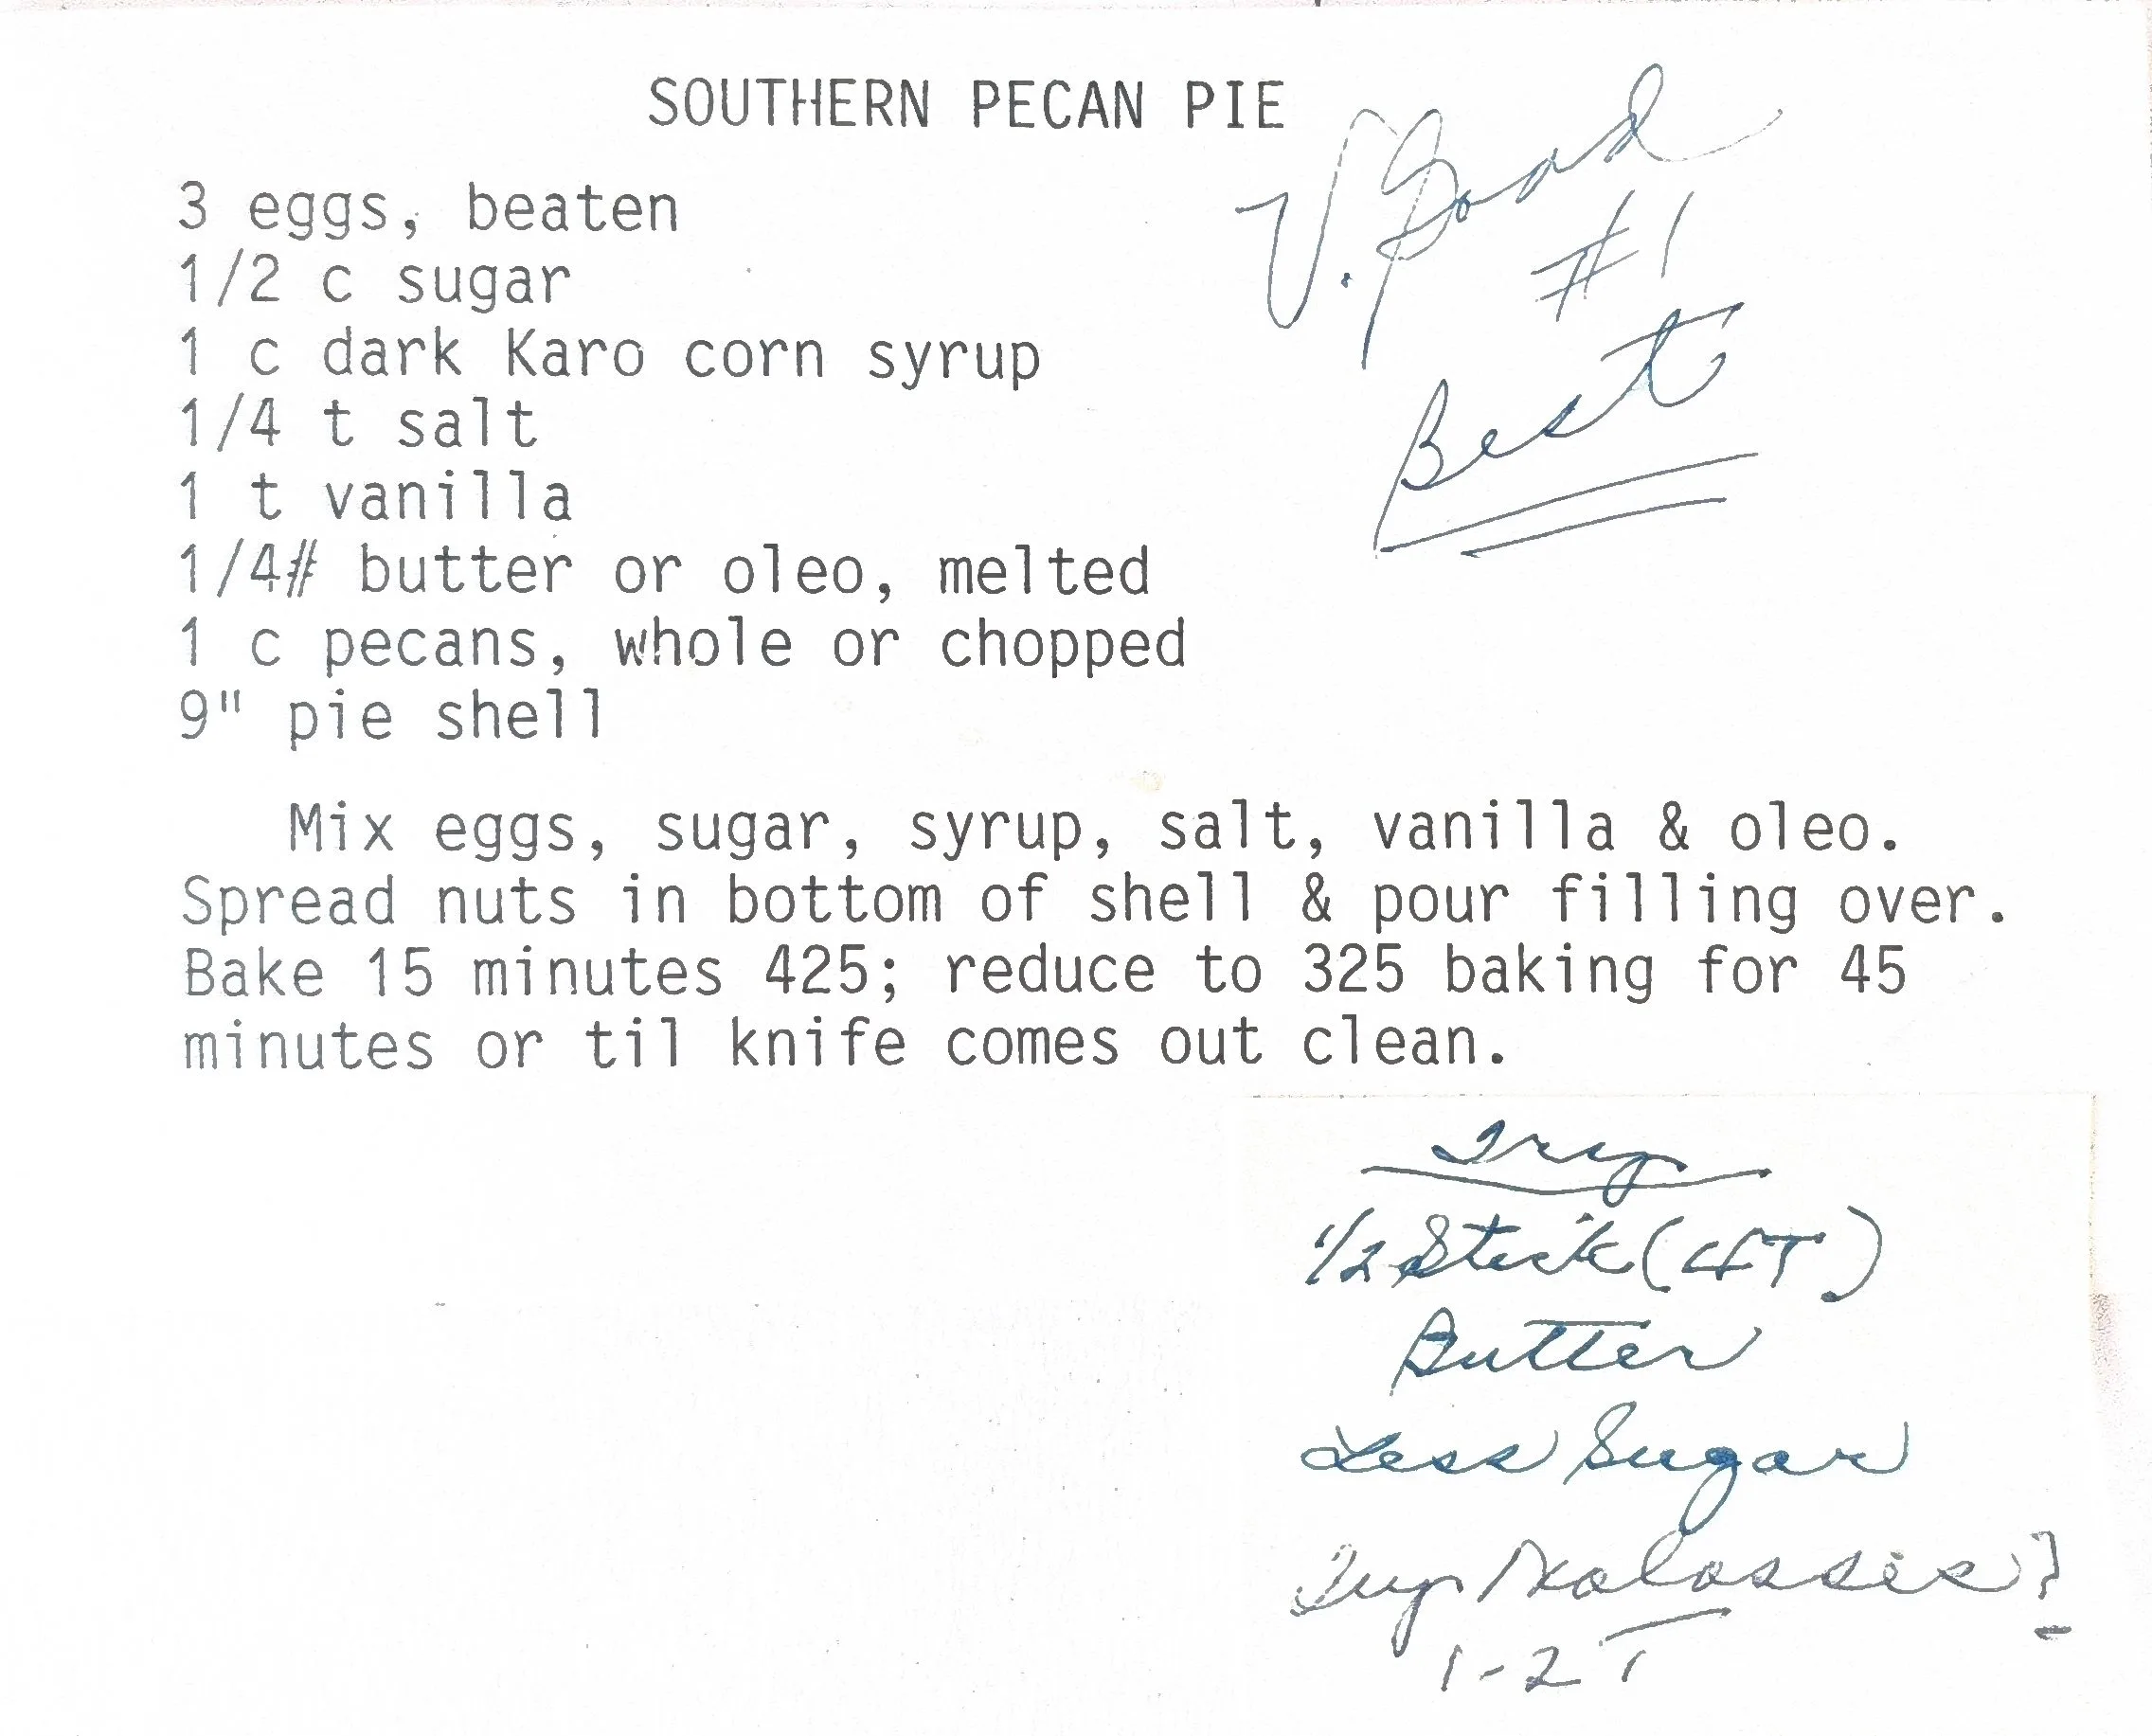 SOUTHERN PECAN PIE
V. Good
#1
Best
3 eggs, beaten
1/2 c sugar
1 c dark Karo corn syrup
1/4 t salt
1 t vanilla
1/4# butter or oleo, melted
1 c pecans, whole or chopped
9" pie shell
Mix eggs, sugar, syrup, salt, vanilla & oleo.
Spread nuts in bottom of shell & pour filling over.
Bake 15 minutes 425; reduce to 325 baking for 45
minutes or til knife comes out clean.
Try
1/2 Stick (4T)
Butter
Less Sugar
Try Molasses?
1-2 T